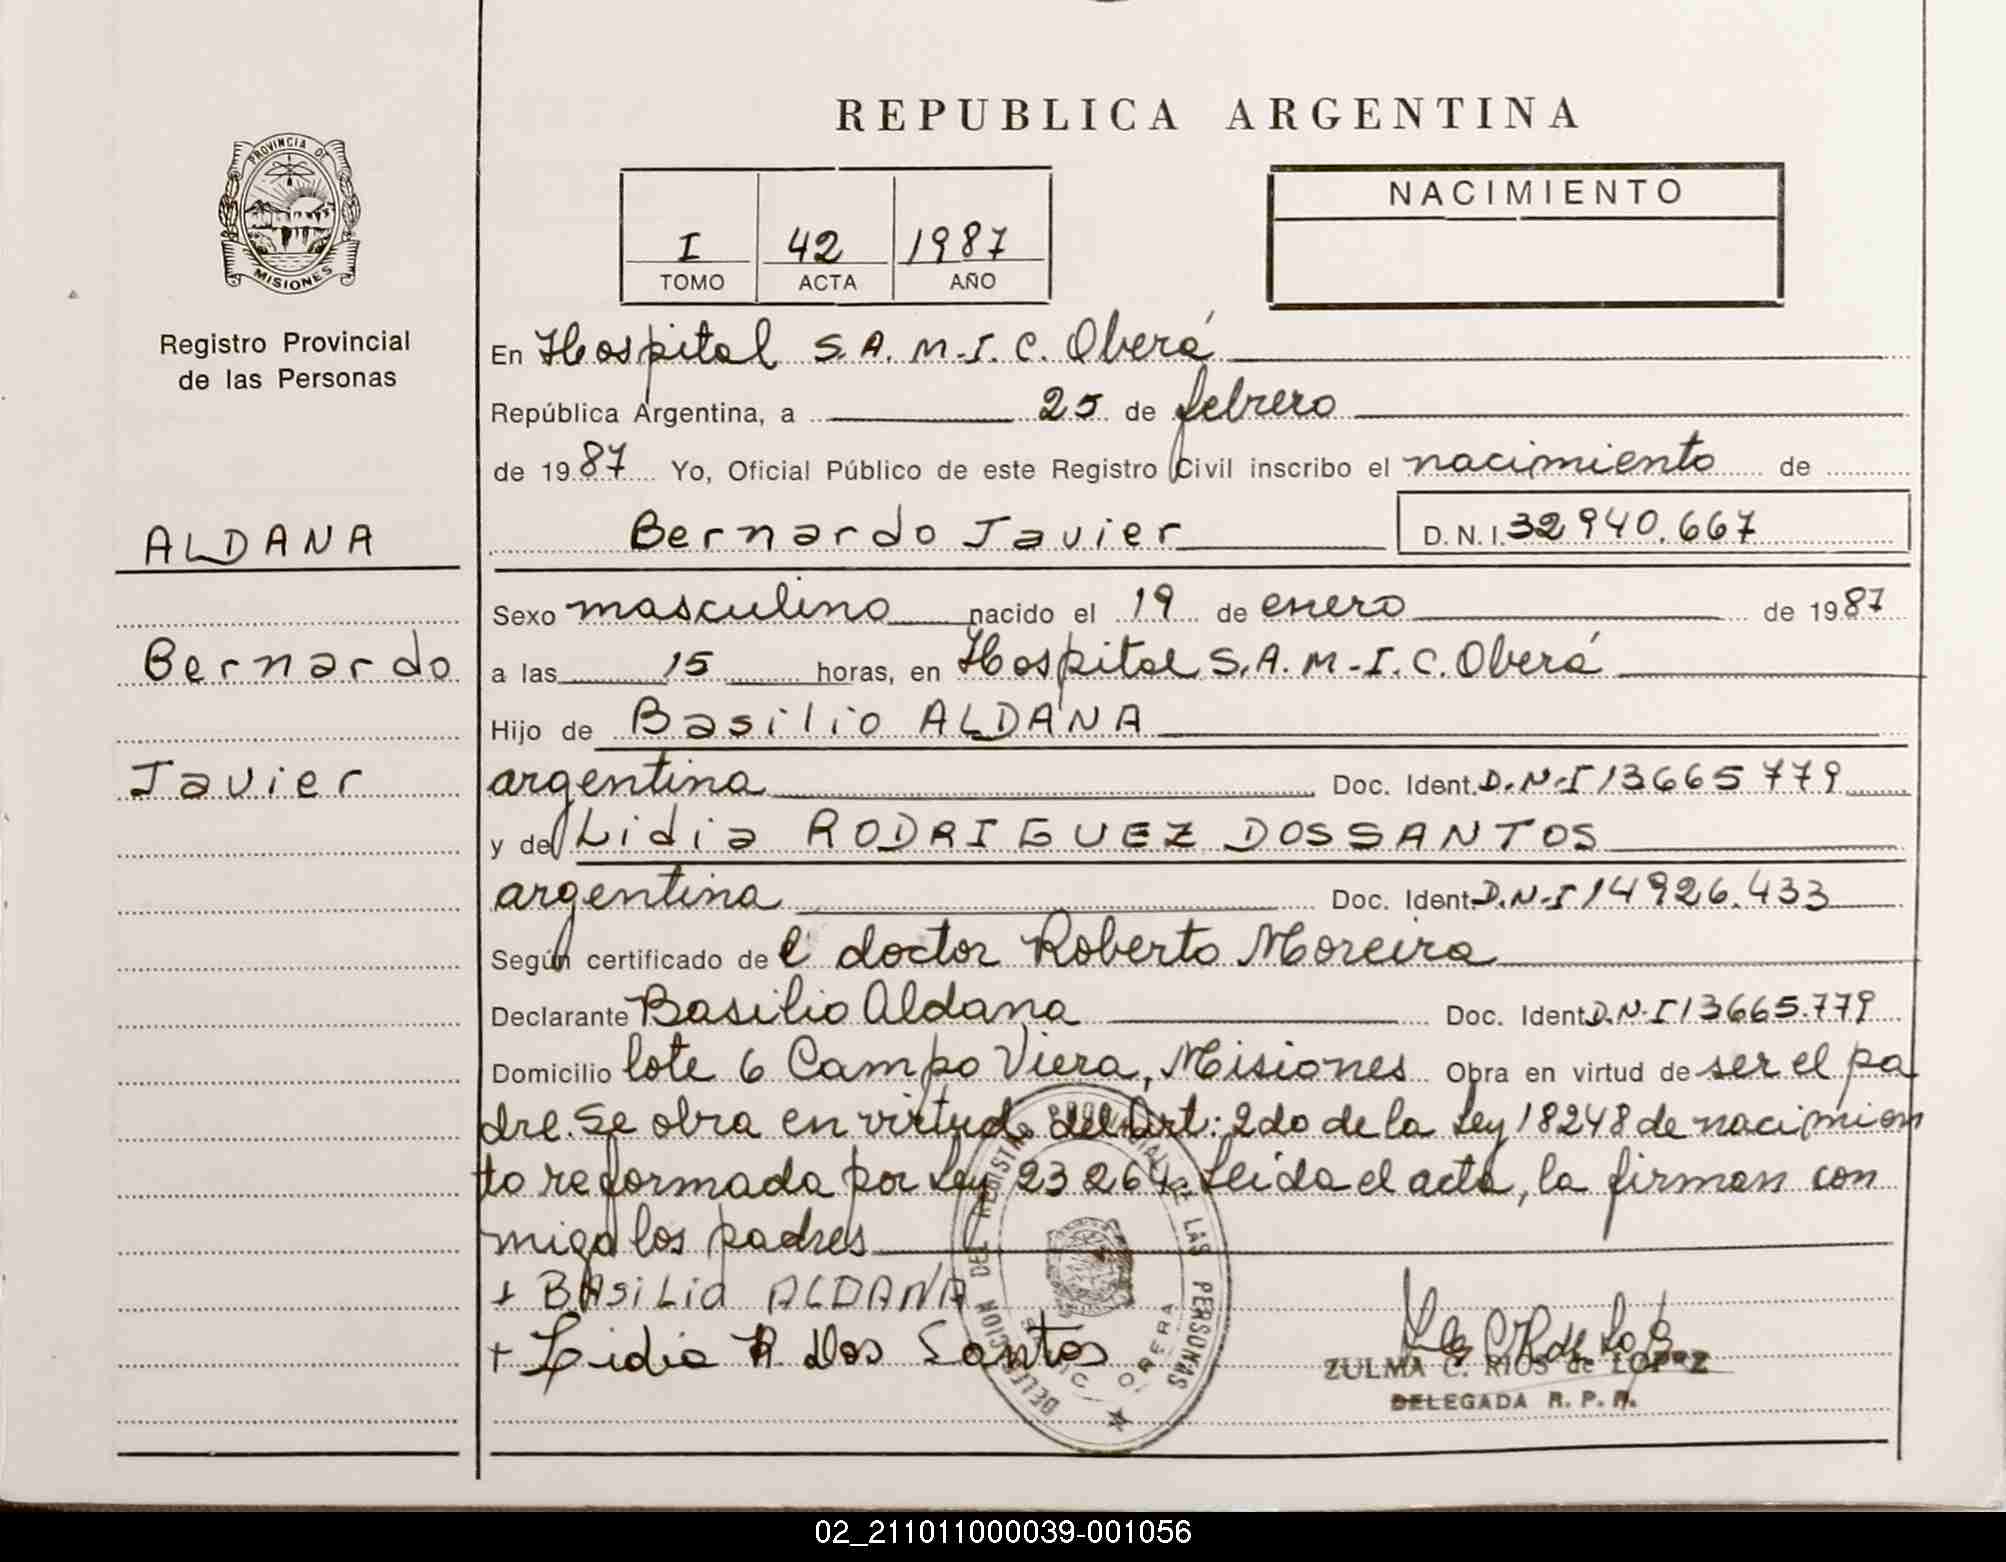 REPUBLICA ARGENTINA
PROVINCIA DE
MISIONES
Registro Provincial
de las Personas
I 42 1987
TOMO ACTA AÑO
NACIMIENTO
En Hospital S.A.M.I.C. Oberá
República Argentina, a 25 de febrero
de 1987 Yo, Oficial Público de este Registro Civil inscribo el nacimiento de
ALDANA
Bernardo Javier D.N.I. 32940.667
Sexo masculino nacido el 19 de enero de 1987
Bernardo
a las 15 horas, en Hospital S.A.M-I.C. Oberá
Hijo de Basilio ALDANA
Javier
argentina Doc. Ident. D.N.I 13665779
y de Lidia RODRIGUEZ DOSSANTOS
argentina Doc. Ident. D.N.I 14926.433
Según certificado de l doctor Roberto Moreira
Declarante Basilio Aldana Doc. Ident. D.N.I 13665.779
Domicilio lote 6 Campo Viera, Misiones Obra en virtud de ser el pa
dre. Se obra en virtud del Art: 2do de la Ley 18248 de nacimien
to reformada por Ley 23264. Leida el acta, la firman con
migo los padres
+ BASiLio ALDANA
+ Lidia R Dos Santos
ZULMA C. RIOS de LOPEZ
DELEGADA R. P. P.
DELEGACION DEL REGISTRO PROVINCIAL DE LAS PERSONAS
OBERA
02_211011000039-001056